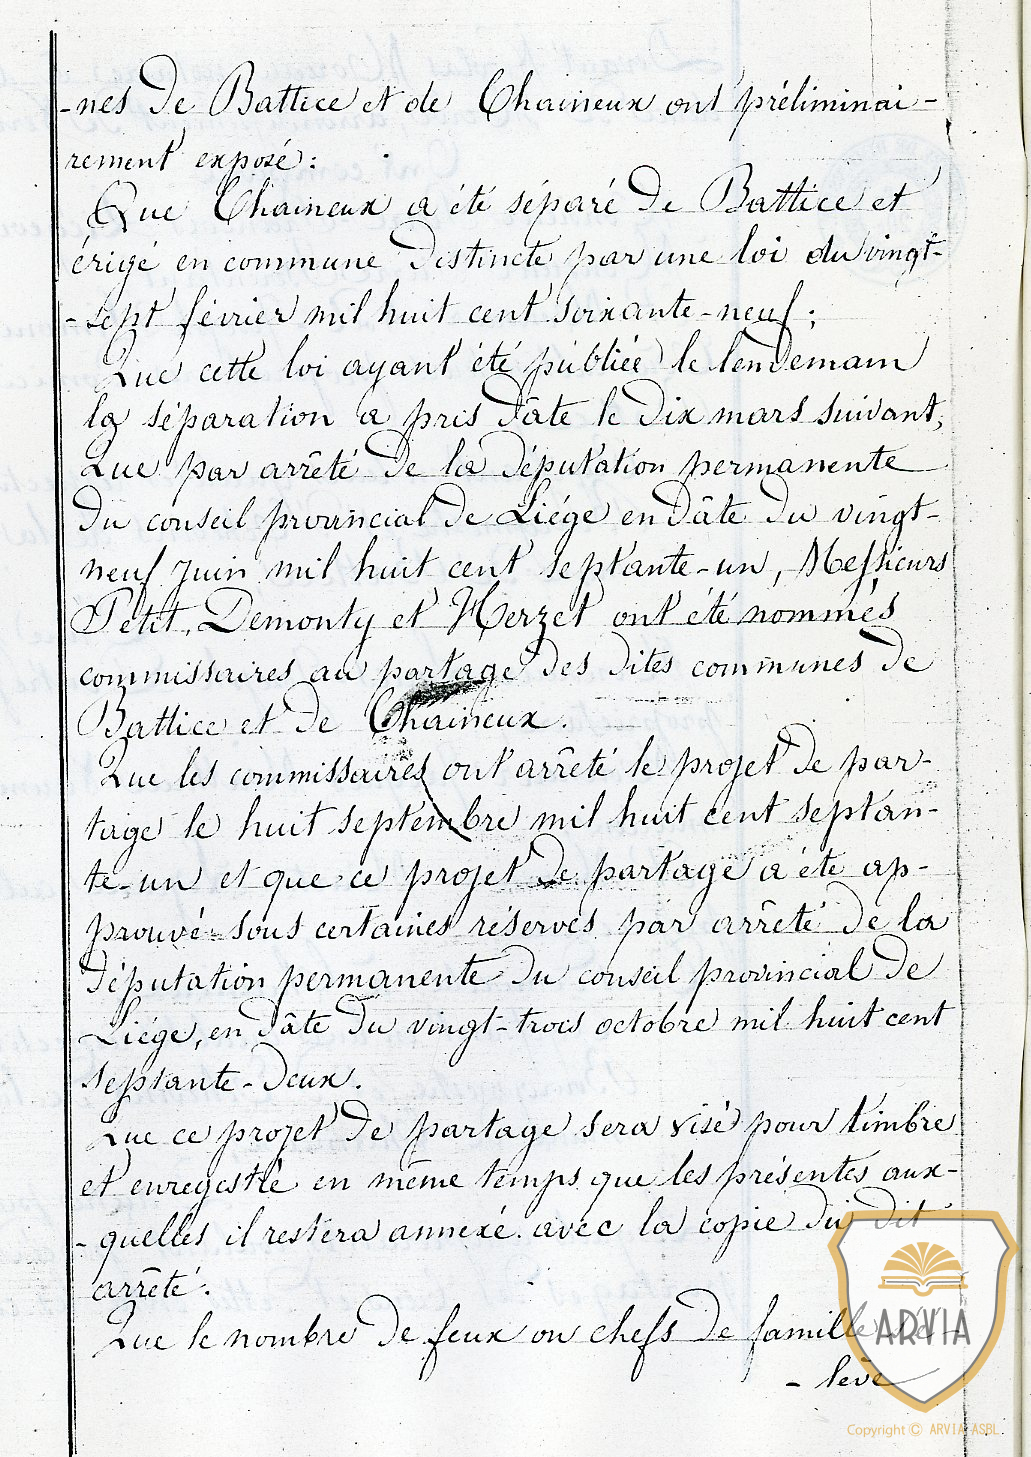 -nes de Battice et de Chaineux ont préliminai-
rement exposé :
Que Chaineux a été séparé de Battice et
érigé en commune distincte par une loi du vingt-
-sept février mil huit cent soixante-neuf ;
Que cette loi ayant été publiée le lendemain
la séparation a pris date le dix mars suivant,
Que par arrêté de la députation permanente
du conseil provincial de Liége en dâte du vingt-
neuf Juin mil huit cent septante-un, Messieurs
Petit, Demonty et Herzet ont été nommés
commissaires au partage des dites communes de
Battice et de Chaineux.
Que les commissaires ont arrêté le projet de par-
tage le huit septembre mil huit cent septan-
te-un et que ce projet de partage a été ap-
prouvé sous certaines réserves par arrêté de la
députation permanente du conseil provincial de
Liége, en dâte du vingt-trois octobre mil huit cent
septante-deux.
Que ce projet de partage sera visé pour timbre
et enregistré en même temps que les présentes aux-
-quelles il restera annexé avec la copie du dit
arrêté.
Que le nombre de feux ou chefs de famille
-levé
ARVIA
Copyright © ARVIA ASBL